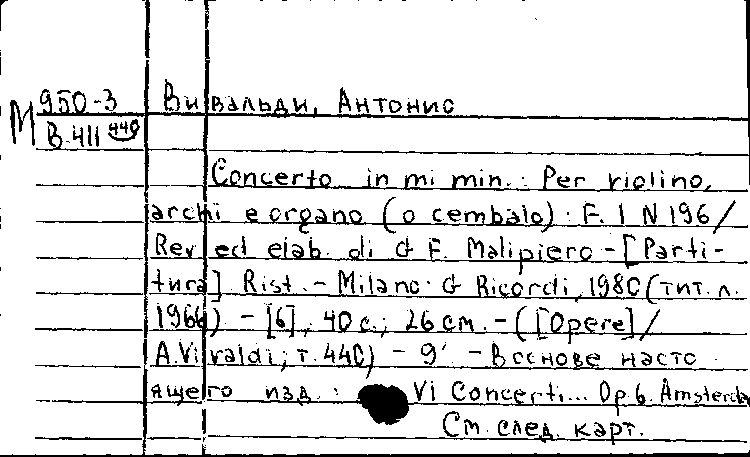 М 950-3 Вивальди, Антонио
В.411 440
Concerto in mi min.: Per violino,
archi e organo (o cembalo): F. I N 196/
Rev ed elab. di G F. Malipiero - [Parti-
tura] Rist. - Milano: G Ricordi, 1980 (тит. л.
1966) - [6], 40 с.; 26 cm. - ([Opere]/
A. Vivaldi; т. 440) - 9' - В основе насто
ящего изд.: VI Concerti... Op. 6. Amsterda
См. след. карт.